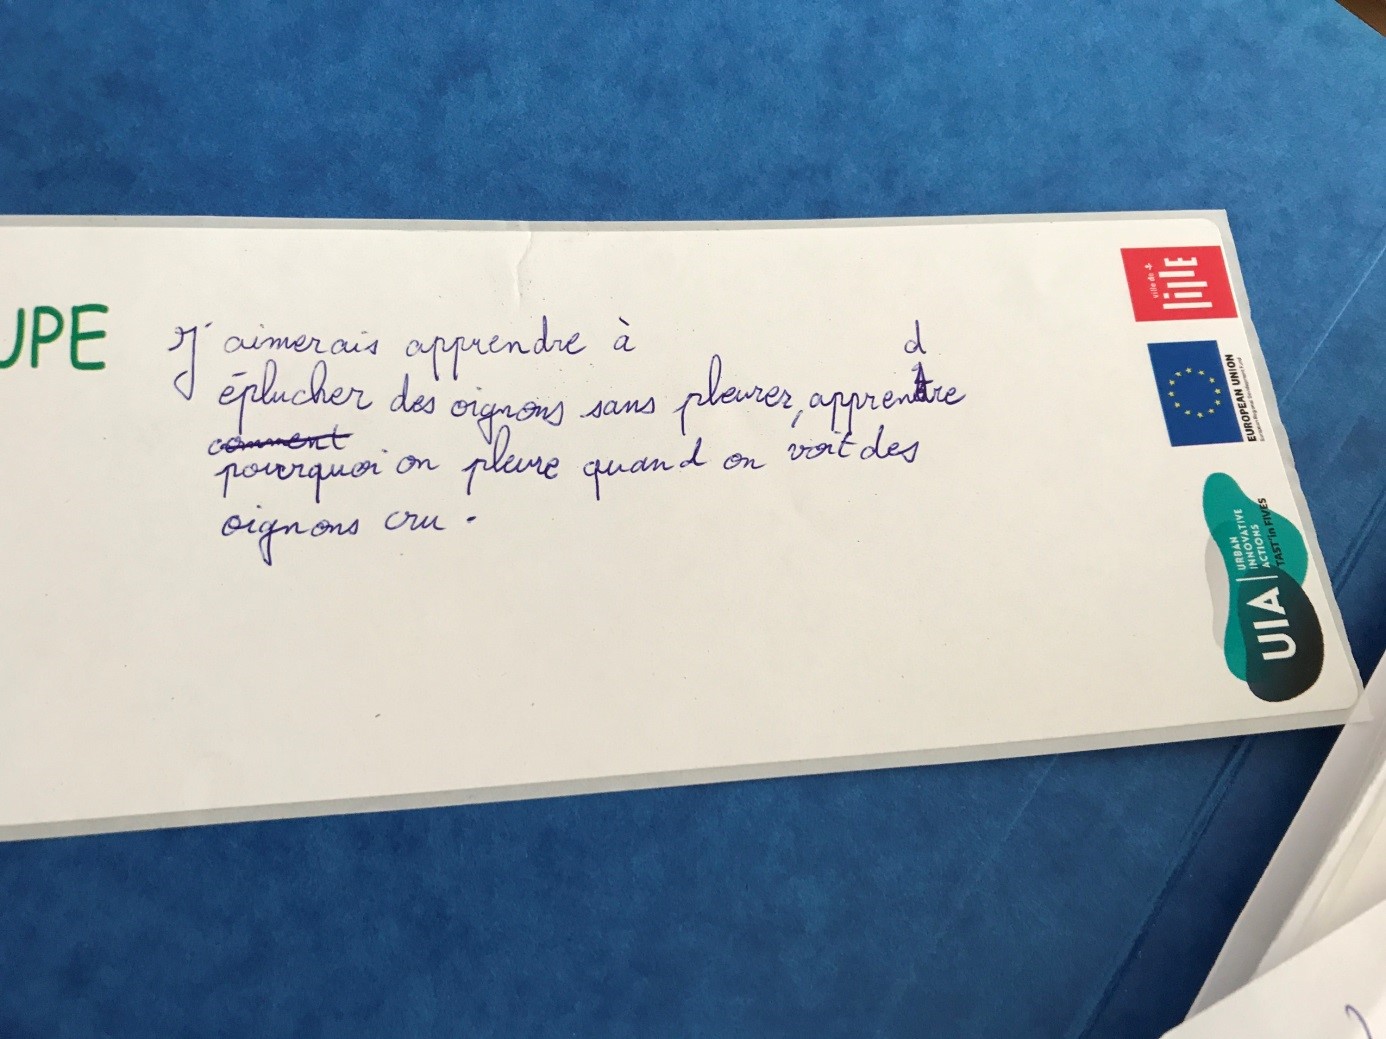 UPE
J'aimerais apprendre à
éplucher des oignons sans pleurer, apprendre
comment
pourquoi on pleure quand on voit des
oignons cru.
ville de
lille
EUROPEAN UNION
UIA
URBAN
INNOVATIVE
ACTIONS
TAST'in FIVES